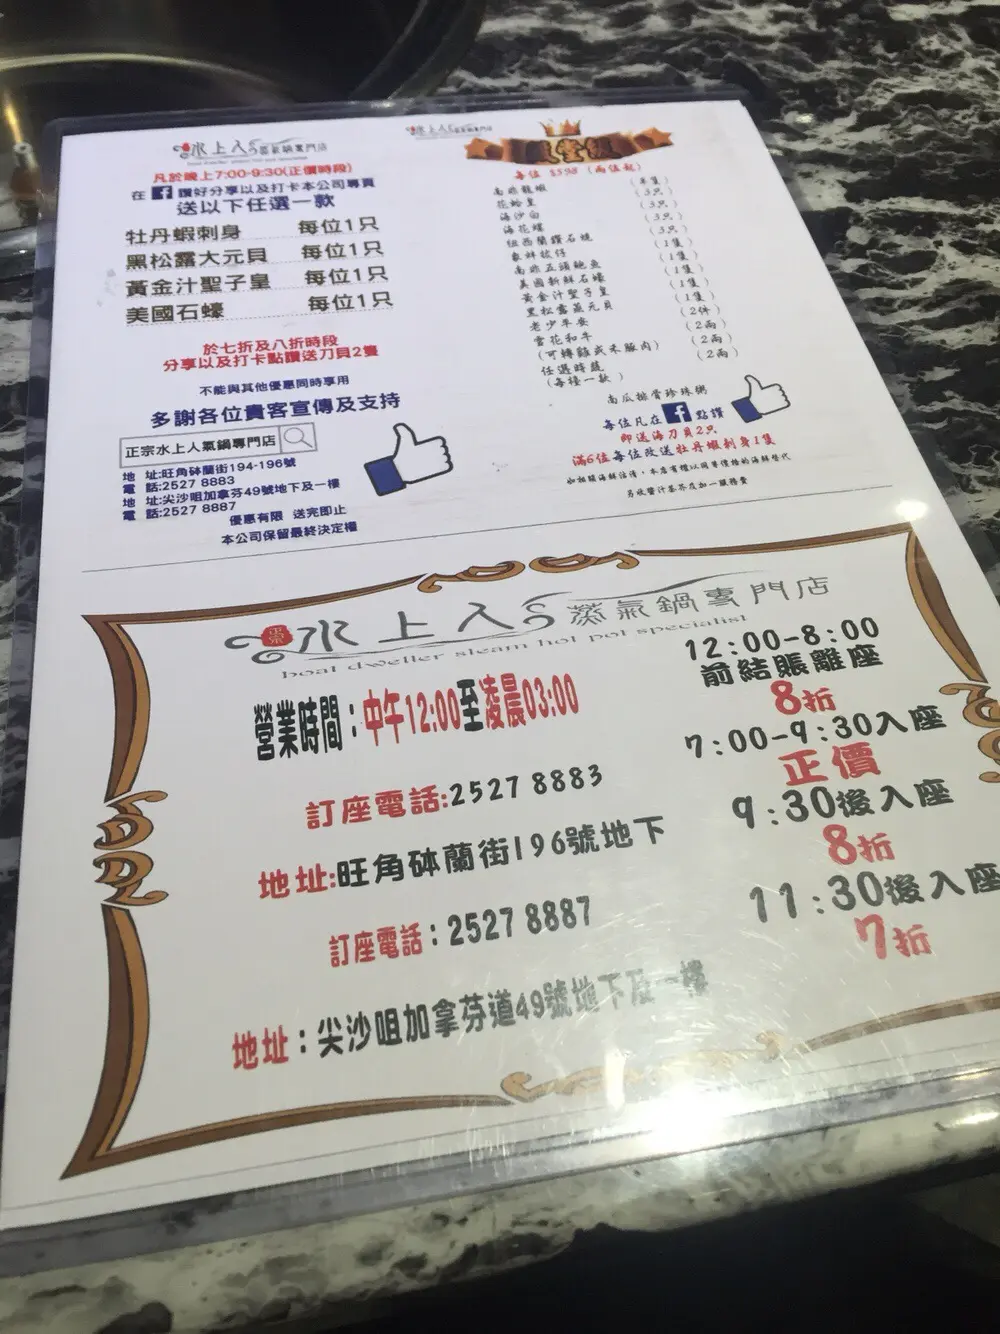 水上人蒸氣鍋專門店
凡於晚上7:00-9:30(正價時段)
在 f 讚好分享以及打卡本公司專頁
送以下任選一款
牡丹蝦刺身 每位1只
黑松露大元貝 每位1只
黃金汁聖子皇 每位1只
美國石蠔 每位1只
於七折及八折時段
分享以及打卡點讚送刀貝2隻
不能與其他優惠同時享用
多謝各位貴客宣傳及支持
正宗水上人氣鍋專門店
地 址:旺角砵蘭街194-196號
電 話:2527 8883
地 址:尖沙咀加拿芬49號地下及一樓
電 話:2527 8887
優惠有限 送完即止
本公司保留最終決定權
水上人蒸氣鍋專門店
每位 $598 (兩位起)
南非龍蝦
花蛤皇 (3只)
海沙白 (3只)
海花螺 (3只)
紐西蘭鑽石蜆 (3只)
(1隻)
南非五頭鮑魚 (1隻)
美國新鮮石蠔 (1隻)
黃金汁聖子皇 (1隻)
黑松露蒸元貝 (1隻)
老少平安 (2件)
雪花和牛 (2兩)
(可轉雞或禾豚肉) (2兩)
任選時蔬 (2兩)
(每檯一款)
南瓜排骨珍珠粥
每位凡在 f 點讚
即送海刀貝2只
滿6位每位改送牡丹蝦刺身1隻
如相關海鮮沽清，本店有權以同等價格的海鮮替代
另收醬汁茶芥及加一服務費
水上人蒸氣鍋專門店
boat dweller steam hot pot specialist
營業時間：中午12:00至凌晨03:00
訂座電話:2527 8883
地址:旺角砵蘭街196號地下
訂座電話：2527 8887
地址：尖沙咀加拿芬道49號地下及一樓
12:00-8:00
前結賬離座
8折
7:00-9:30入座
正價
9:30後入座
8折
11:30後入座
7折